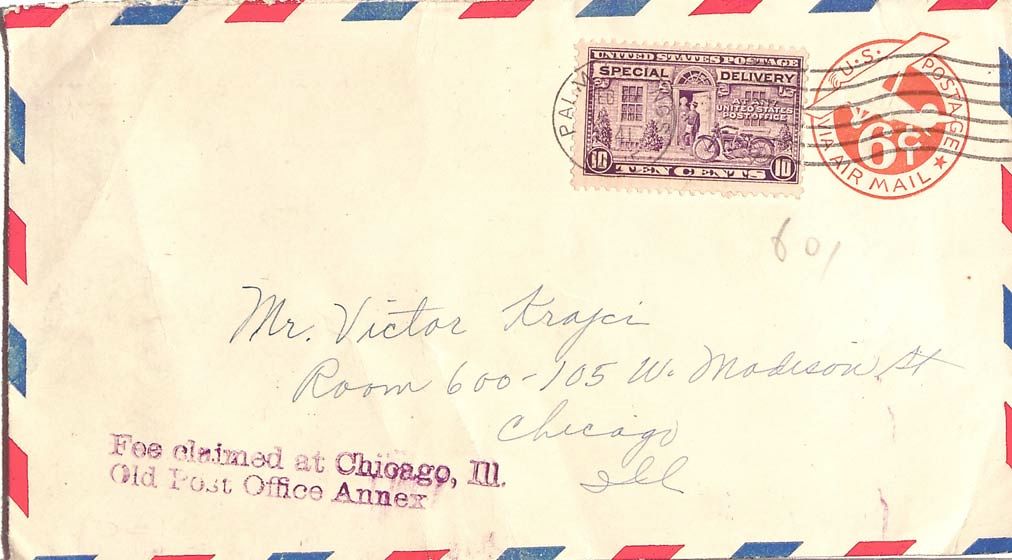 UNITED STATES POSTAGE
SPECIAL DELIVERY
AT ANY
UNITED STATES
POST OFFICE
10 TEN CENTS 10
41
U.S. POSTAGE
6¢
VIA AIR MAIL
601
Mr. Victor Krajci
Room 600-105 W. Madison St
Chicago
Ill
Fee claimed at Chicago, Ill.
Old Post Office Annex